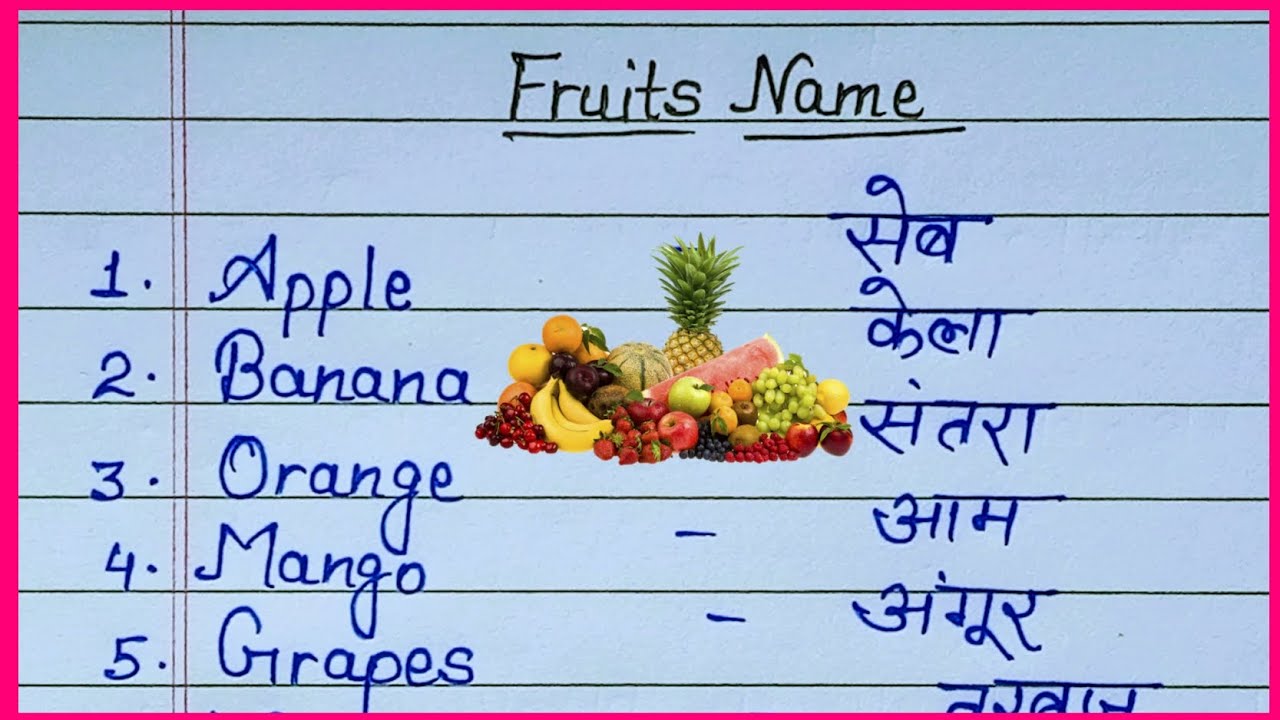 Fruits Name
1. Apple सेब
2. Banana केला
3. Orange संतरा
4. Mango - आम
5. Grapes - अंगूर